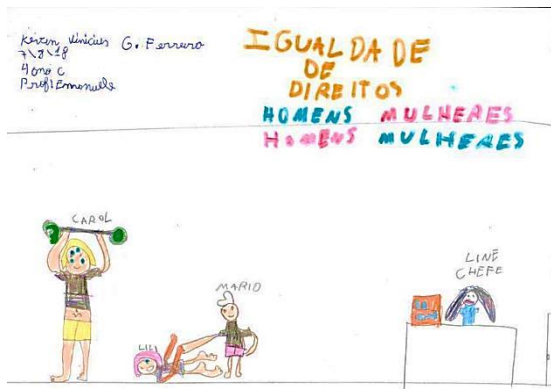 Kevin Vinicius G. Ferraro
7\8\18
4 ano C
Prof: Emanuelle
IGUALDADE
DE
DIREITOS
HOMENS MULHERES
HOMENS MULHERES
CAROL
LINE
CHEFE
MARIO
LILI